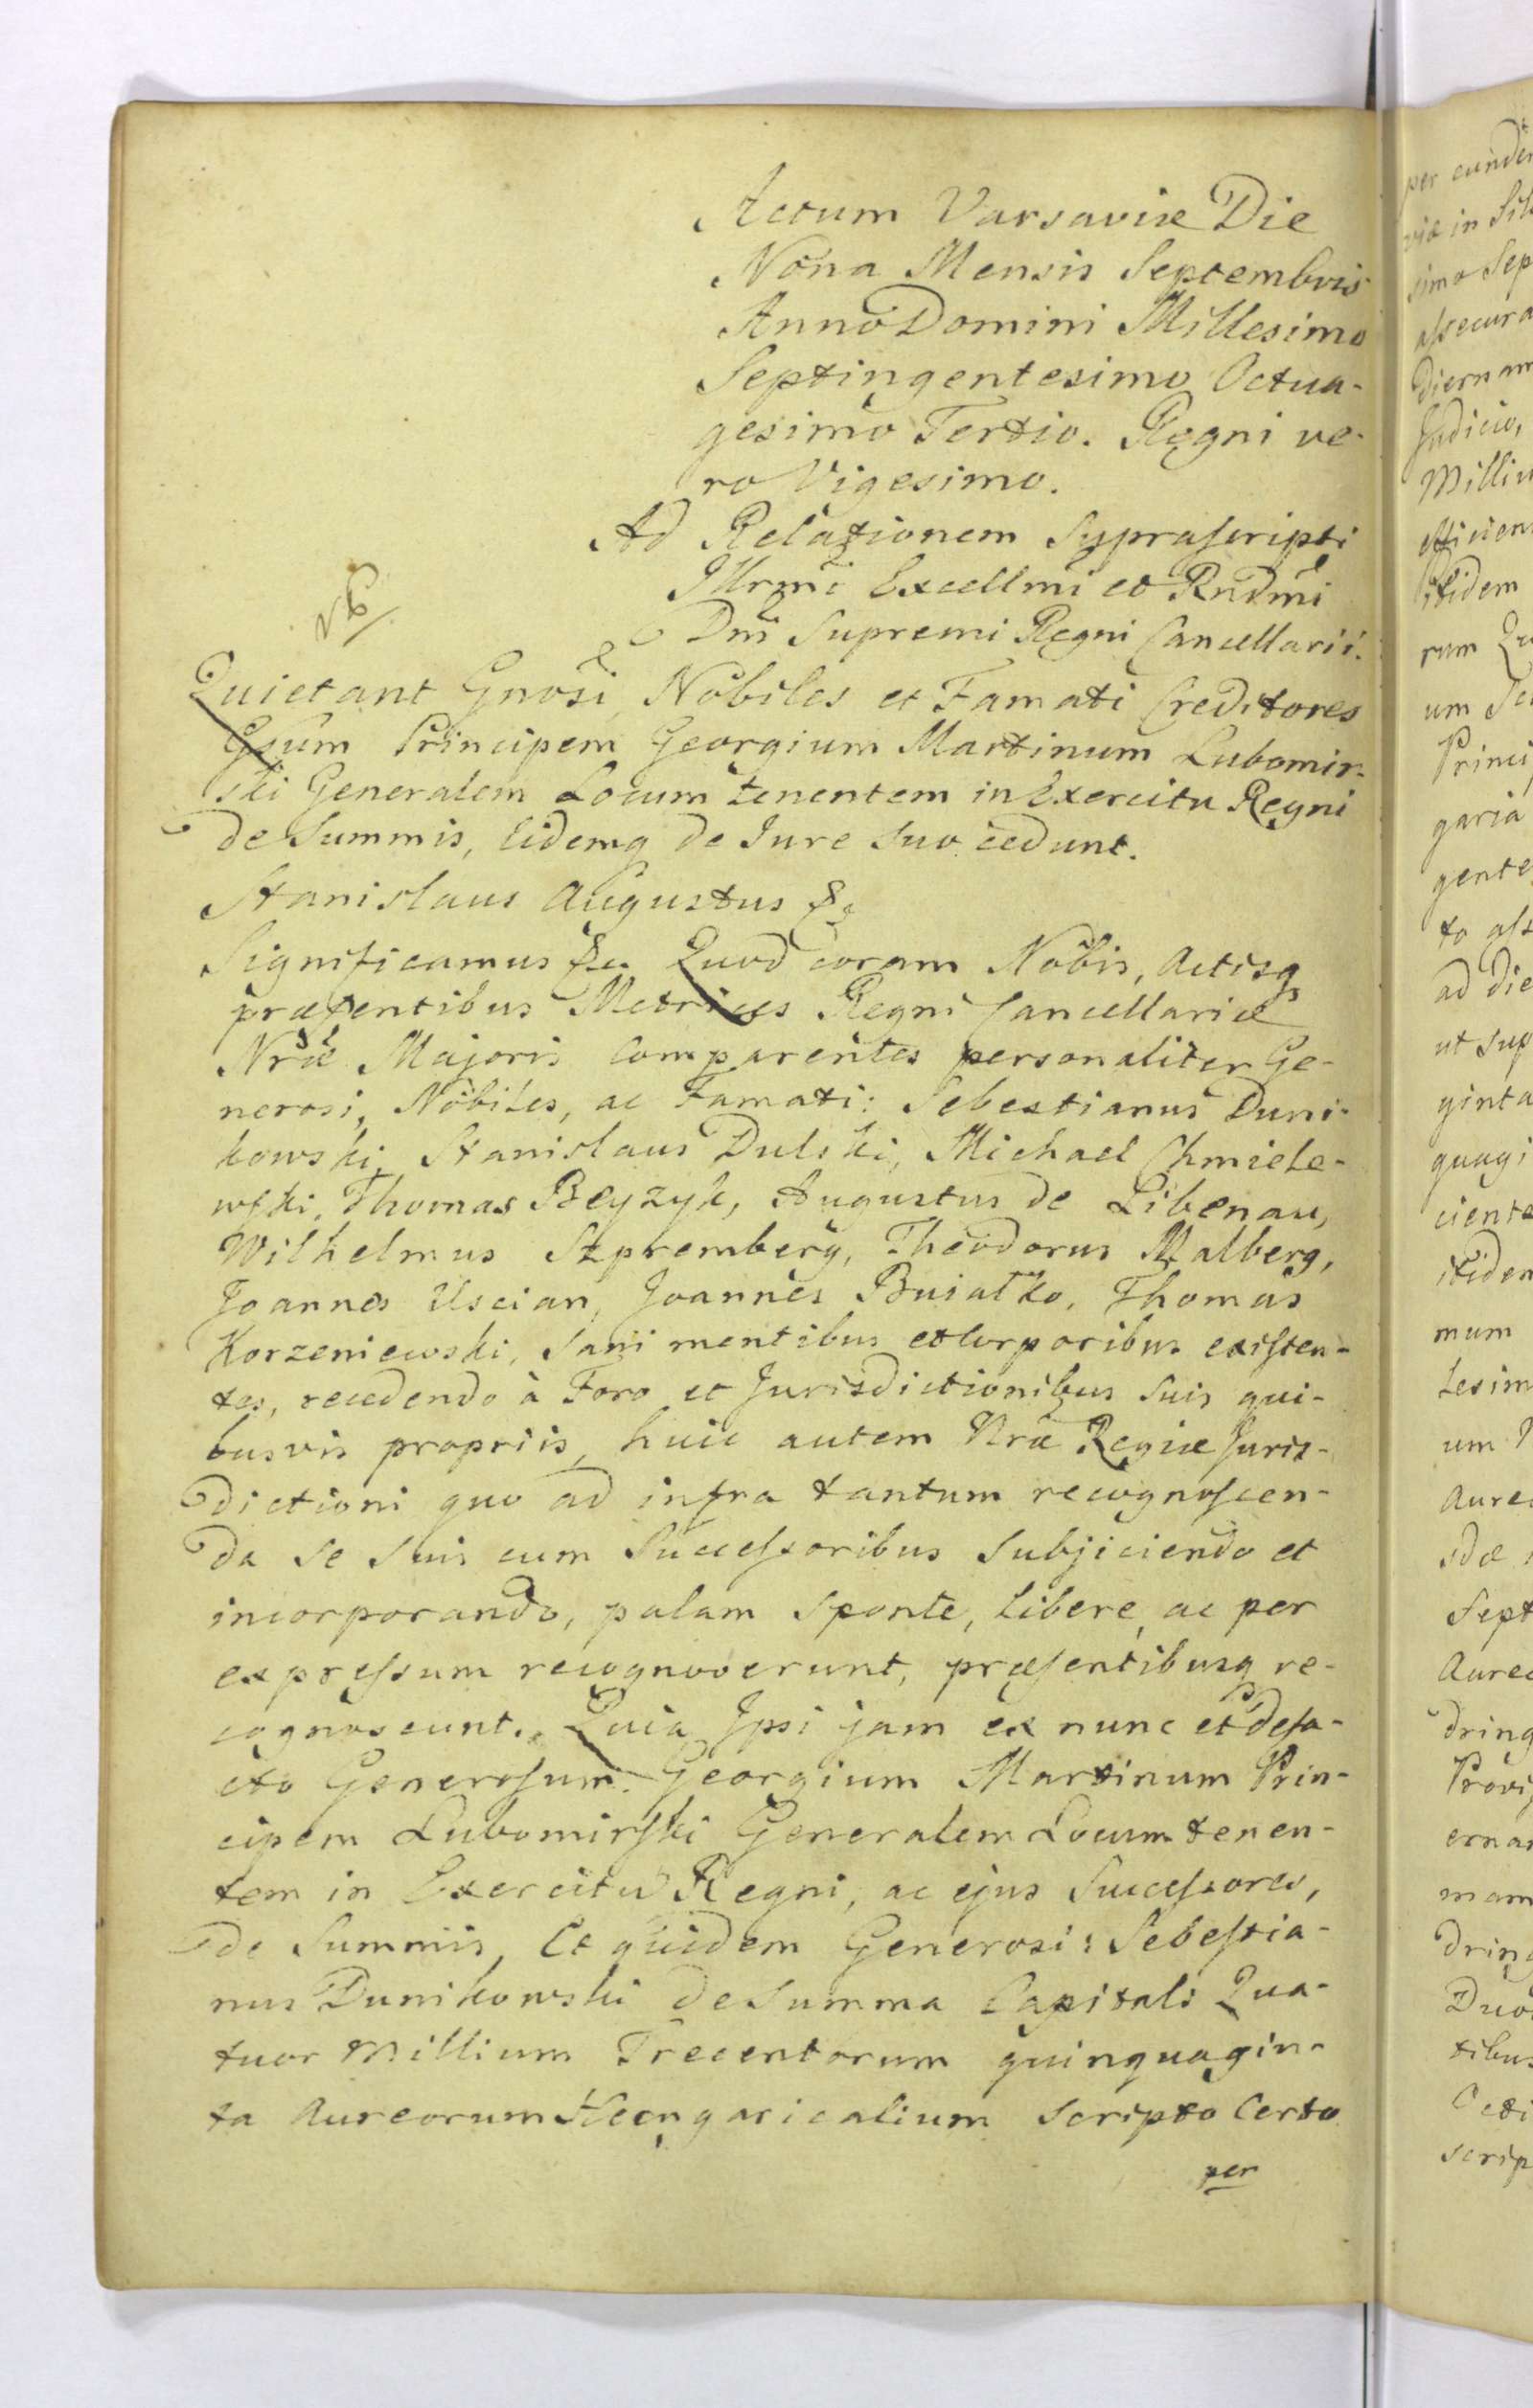 Actum Varsaviæ Die
Nona Mensis Septembris
Anno Domini Millesimo
Septingentesimo Octua-
gesimo Tertio. Regni ve-
ro Vigesimo.
Ad Relationem Suprascripti
Illrmi Excellmi et Rndmi
Dni Supremi Regni Cancellarii.
Quietant Gnosi Nobiles et Famati Creditores
Gsum Principem Georgium Martinum Lubomir-
ski Generalem Locum tenentem in Exercitu Regni
de Summis, Eidemq de Jure suo cedunt.
Stanislaus Augustus &c
Significamus &c. Quod coram Nobis, Actisq
præsentibus Metrices Regni Cancellariæ
Nræ Majoris Comparentes personaliter Ge-
nerosi, Nobiles, ac Famati: Sebestianus Duni-
kowski, Stanislaus Dulski, Michael Chmiele-
wski, Thomas Beyzyk, Augustus de Libenau,
Wilhelmus Szpremberg, Theodorus Malberg,
Joannes Uscian, Joannes Buiałko, Thomas
Korzeniewski, Sani mentibus et Corporibus existen-
tes, recedendo à Foro et Jurisdictionibus Suis qui-
busvis propriis, huic autem Nræ Regiæ Juris-
dictioni quo ad infra tantum recognoscen-
da se suis cum Successoribus Subjiciendo et
incorporando, palam sponte, libere, ac per
expressum recognoverunt, præsentibusq re-
cognoscunt. Quia Ipsi jam ex nunc et defa-
cto Generosum Georgium Martinum Prin-
cipem Lubomirski Generalem Locum tenen-
tem in Exercitu Regni, ac ejus Successores,
de Summis, Et quidem Generosi: Sebestia-
nus Dunikowski de Summa Capitali Qua-
tuor Millium Trecentorum quinquagin-
ta Aureorum Hungaricalium Scripto Certo
per
per eunde
viæ in Sil
simo Sep
assecura
diernam
Judicio,
Milliu
efficien
itidem
rum Qu
um
Princi
garia
gente
to ass
ad die
ut sup
ginta
quagi
ciente
itidem
mum
tesim
um
Aure
Sept
Aureo
dring
Provi
ernar
mam
dring
Duo
tibus
scrip